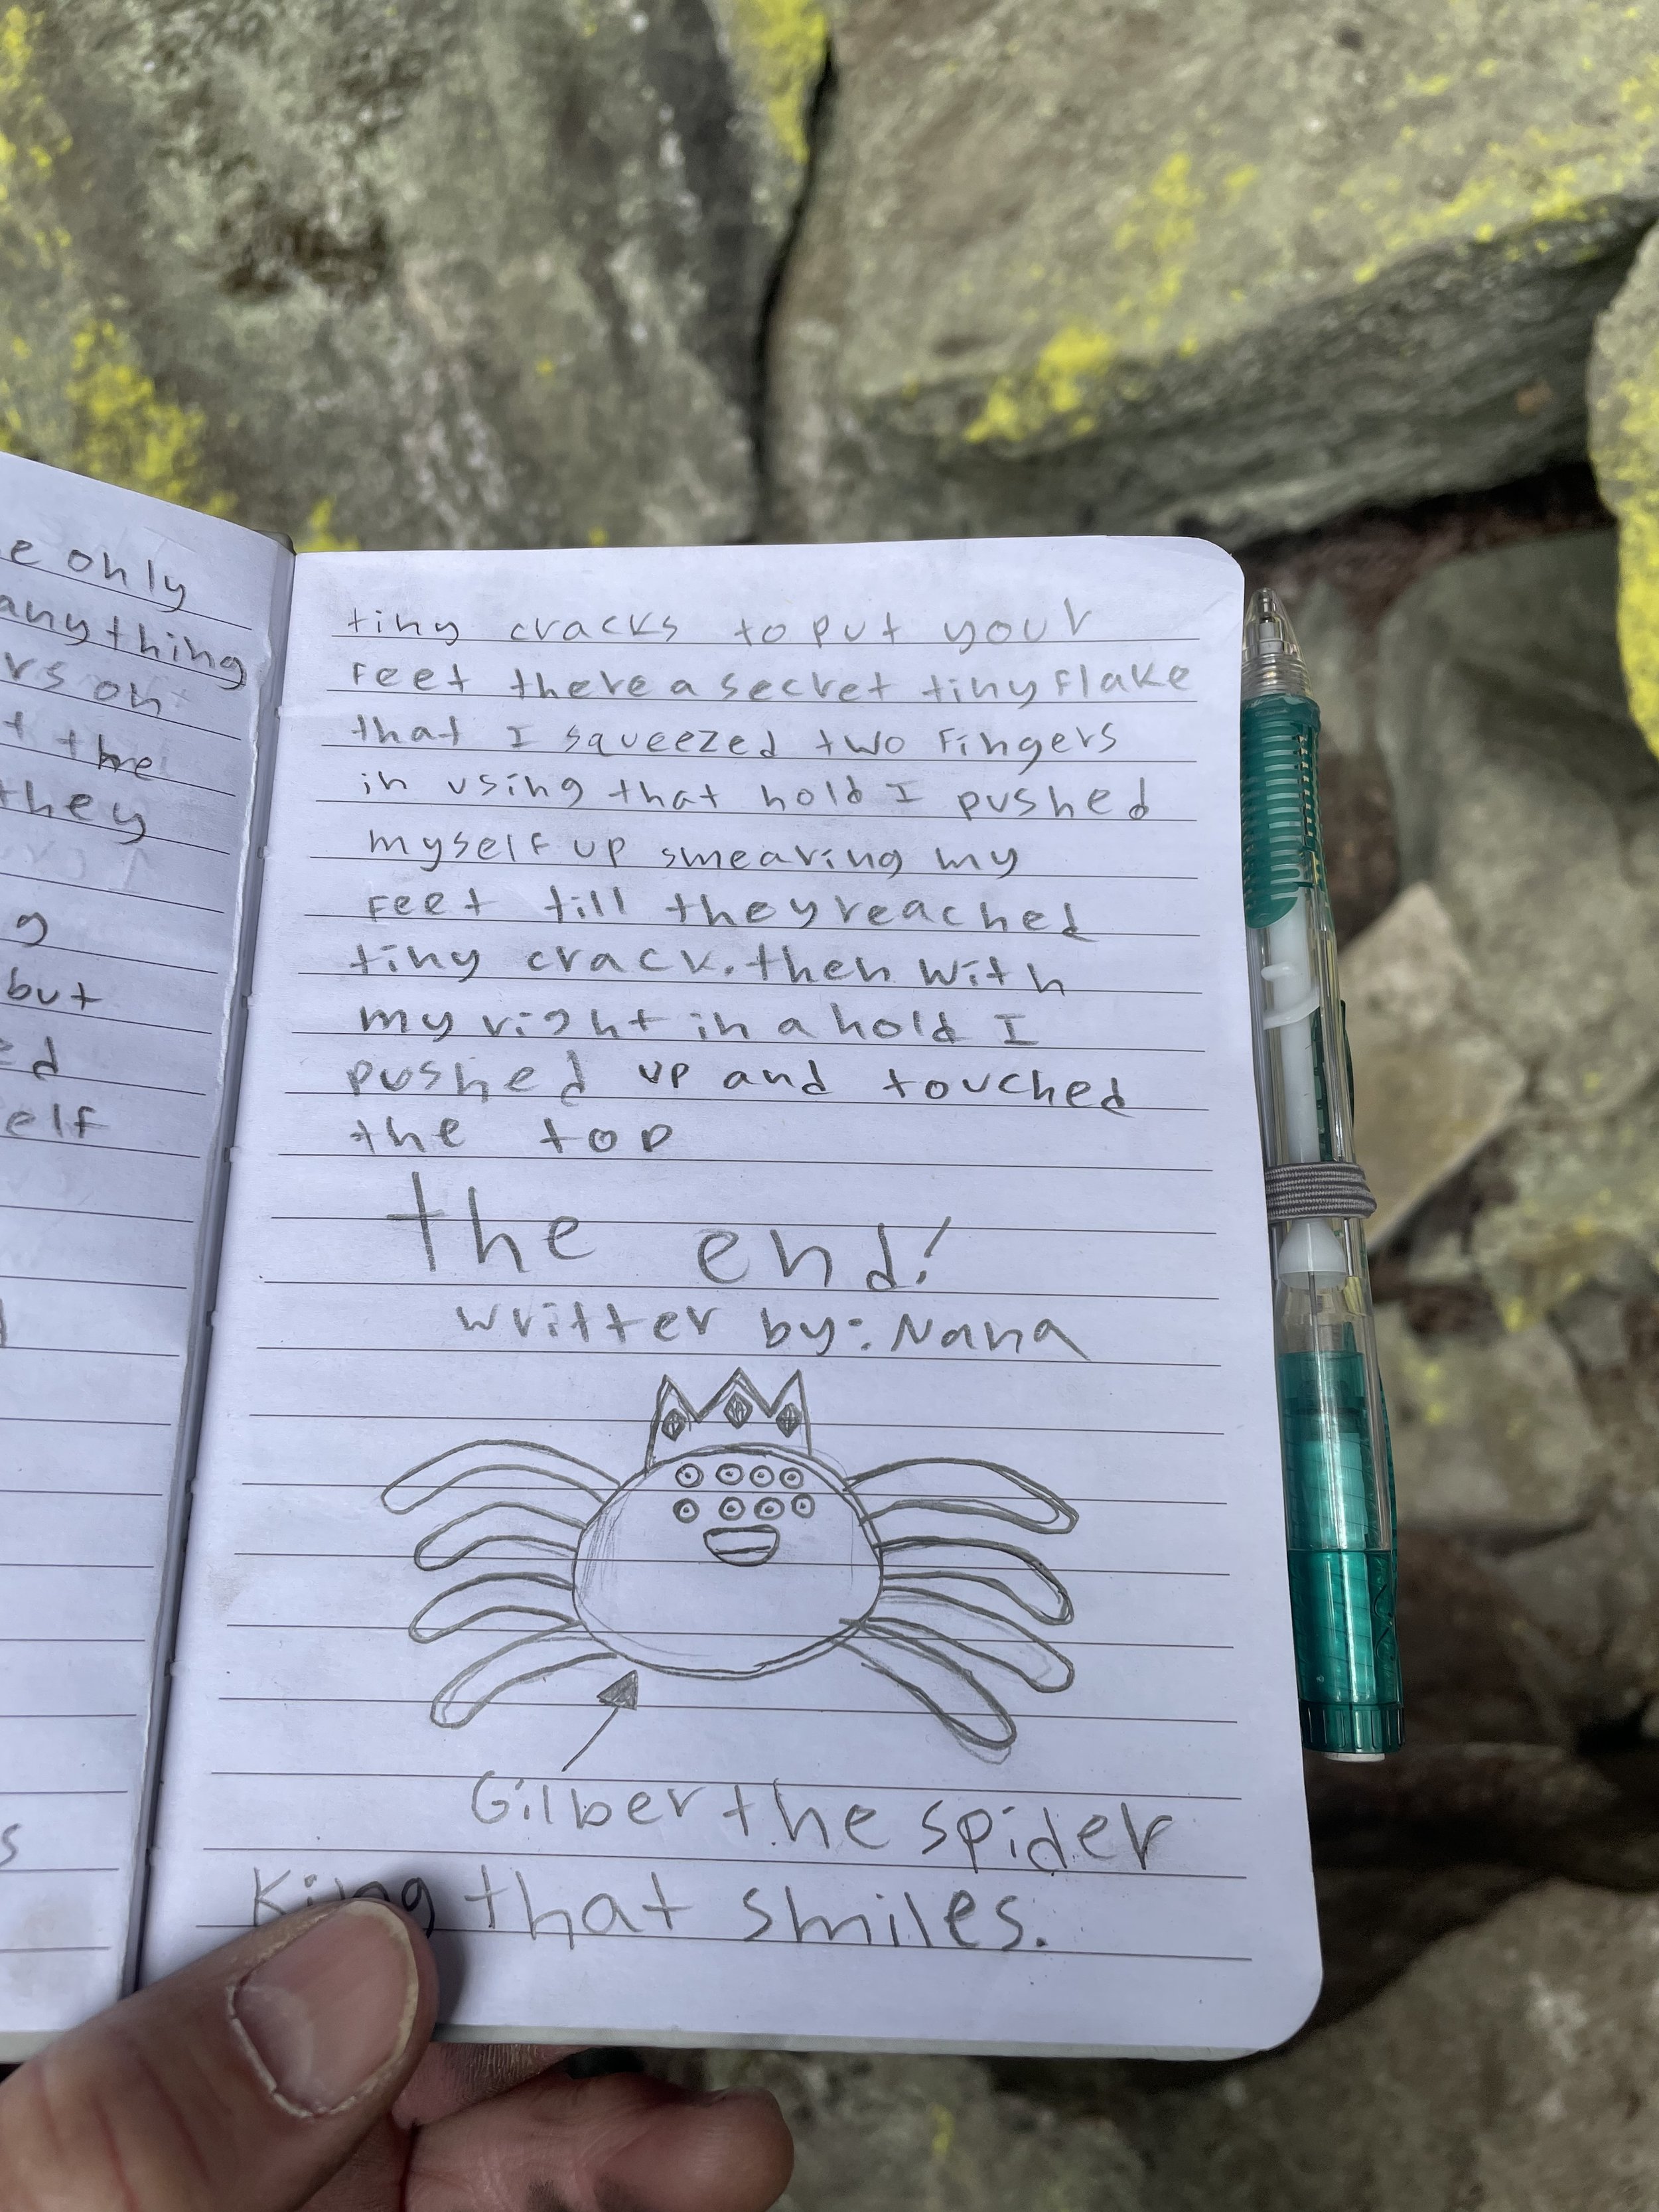 e only
anything
rs on
t the
they
g
but
ed
elf
s
tiny cracks to put your
feet there a secret tiny flake
that I squeezed two fingers
in using that hold I pushed
myself up smearing my
feet till they reached
tiny crack. then with
my right in a hold I
pushed up and touched
the top
the end!
writter by: Nana
Gilber the spider
King that smiles.